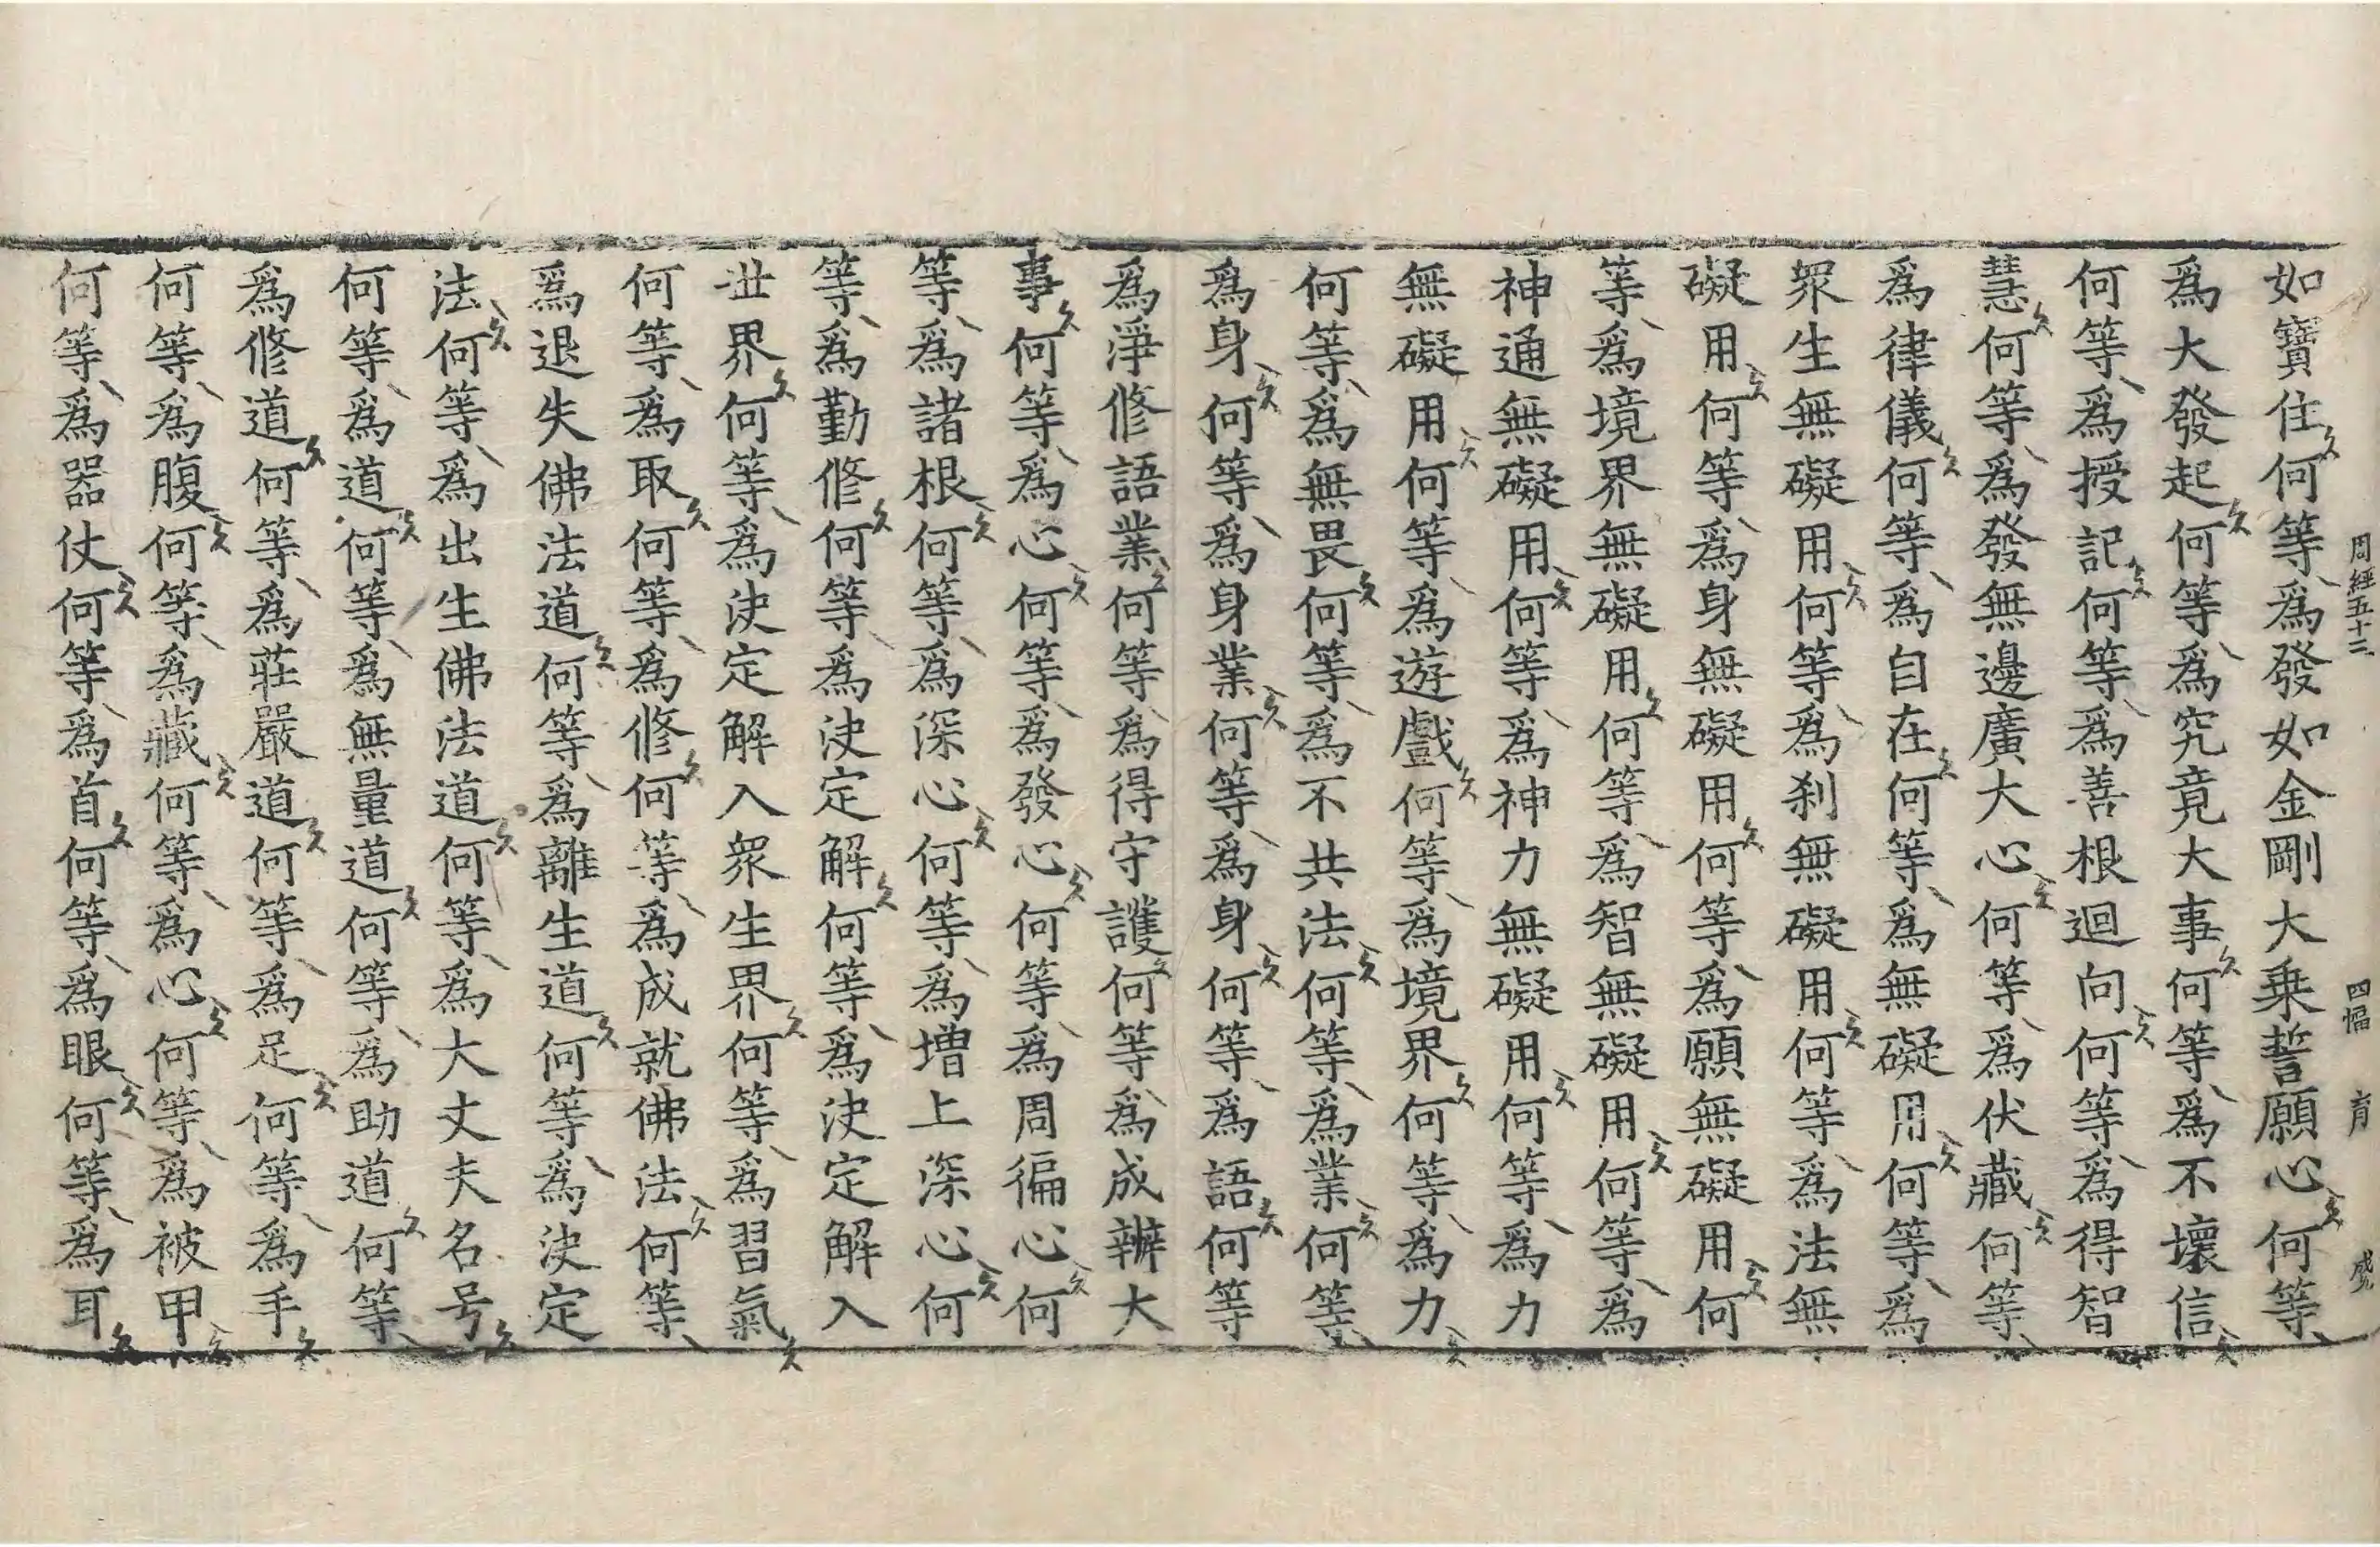 周經五十三 四幅 育 盛
如寶住何等爲發如金剛大乗誓願心何等
爲大發起何等爲究竟大事何等爲不壞信
何等爲授記何等爲善根迴向何等爲得智
慧何等爲發無邊廣大心何等爲伏藏何等
爲律儀何等爲自在何等爲無礙用何等爲
衆生無礙用何等爲刹無礙用何等爲法無
礙用何等爲身無礙用何等爲願無礙用何
等爲境界無礙用何等爲智無礙用何等爲
神通無礙用何等爲神力無礙用何等爲力
無礙用何等爲遊戲何等爲境界何等爲力
何等爲無畏何等爲不共法何等爲業何等
爲身何等爲身業何等爲身何等爲語何等
爲淨修語業何等爲得守護何等爲成辦大
事何等爲心何等爲發心何等爲周徧心何
等爲諸根何等爲深心何等爲增上深心何
等爲勤修何等爲決定解何等爲決定解入
丗界何等爲決定解入衆生界何等爲習氣
何等爲取何等爲修何等爲成就佛法何等
爲退失佛法道何等爲離生道何等爲決定
法何等爲出生佛法道何等爲大丈夫名号
何等爲道何等爲無量道何等爲助道何等
爲修道何等爲莊嚴道何等爲足何等爲手
何等爲腹何等爲藏何等爲心何等爲被甲
何等爲器仗何等爲首何等爲眼何等爲耳